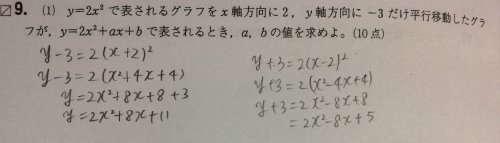 9. (1) y=2x² で表されるグラフをx軸方向に2，y軸方向に −3 だけ平行移動したグラ
フが，y=2x²+ax+b で表されるとき，a，bの値を求めよ。(10点)
y-3=2(x+2)²
y-3=2(x²+4x+4)
y=2x²+8x+8+3
y=2x²+8x+11
y+3=2(x-2)²
y+3=2(x²-4x+4)
y+3=2x²-8x+8
=2x²-8x+5